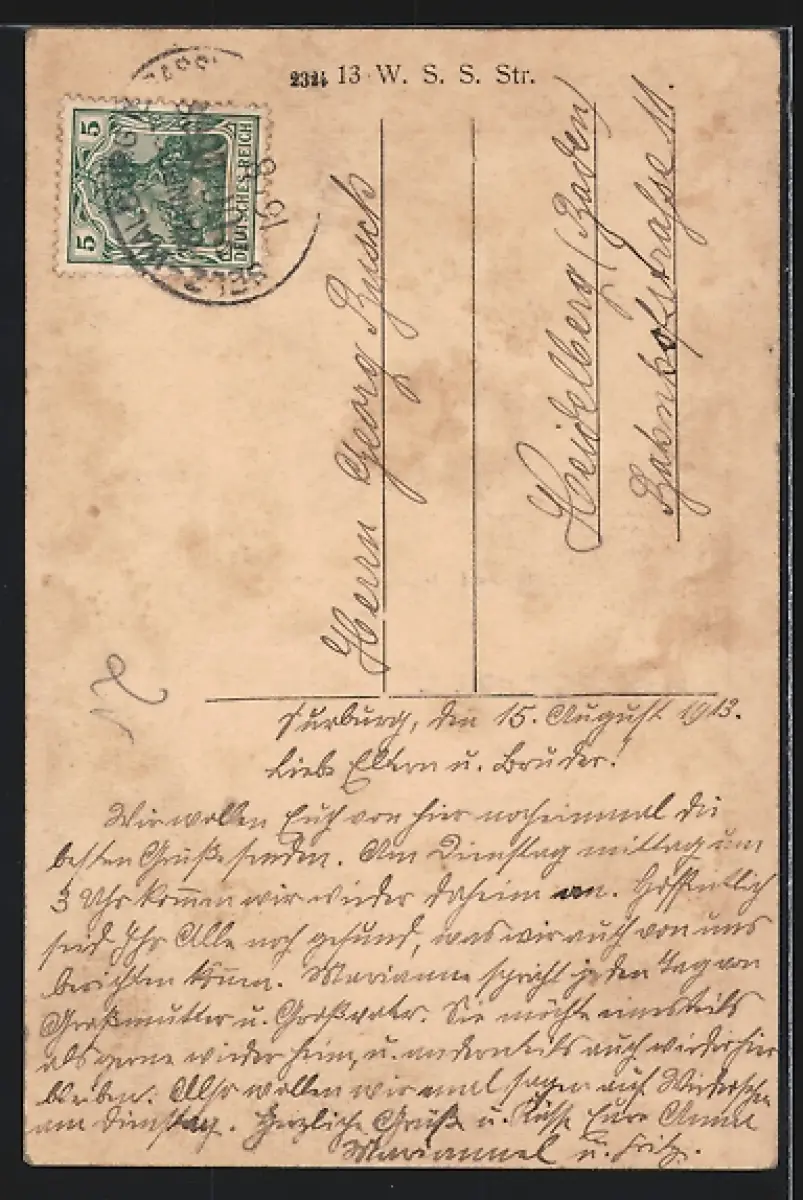 2324 13 W. S. S. Str.
5 5
DEUTSCHES REICH
Herrn Georg Busch
Heidelberg (Baden)
Bahnhofstrasse 11.
Surburg, den 15. August 1913.
Liebe Eltern u. Brüder!
Wir wollen Euch von hier nocheinmal die
besten Grüße senden. Am Dienstag mittag um
3 Uhr kommen wir wieder daheim an. Hoffentlich
seid Ihr Alle noch gesund, was wir auch von uns
berichten können. Marianne spricht jeden Tag von
Großmutter u. Großvater. Sie möchte einesteils
als gerne wieder heim, u. andernteils auch wieder hier
bleiben. Also wollen wir mal sagen auf Wiedersehen
am Dienstag. Herzliche Grüße u. Küsse Eure Anna
Mariannel u. Fritz.